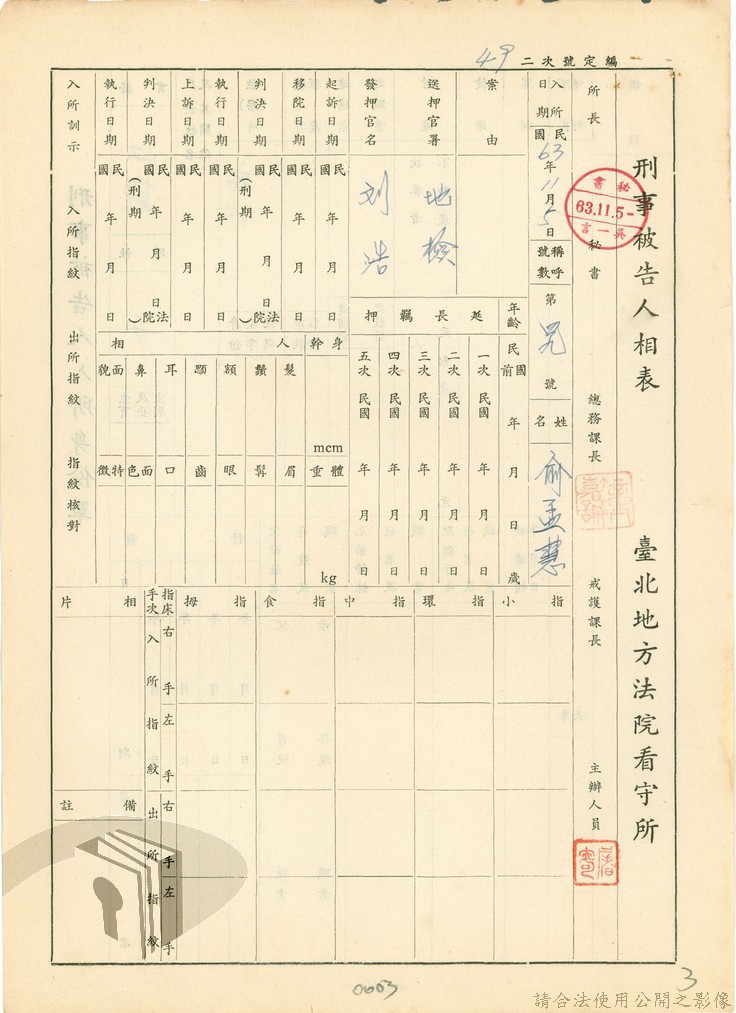 編定號次二
刑事被告人相表 臺北地方法院看守所
所長 秘書 總務課長 戒護課長 主辦人員
秘書
63.11.5-
吳一言
入所日期 民國63年11月5日
稱呼號數 第 號
姓名 俞孟慧
年齡 民國前 年 月 日 歲
案由
送押官署 地檢
發押官名 刘浩
延長羈押
一次 民國 年 月 日
二次 民國 年 月 日
三次 民國 年 月 日
四次 民國 年 月 日
五次 民國 年 月 日
起訴日期 民國 年 月 日
移院日期 民國 年 月 日
判決日期 民國 年 月 日 (刑期 法院)
執行日期 民國 年 月 日
上訴日期 民國 年 月 日
判決日期 民國 年 月 日 (刑期 法院)
執行日期 民國 年 月 日
身幹 mcm
體重 kg
人相
髮 鬚 額 顋 耳 鼻 面貌
眉 髯 眼 齒 口 面色 特徵
入所訓示 入所指紋 出所指紋 指紋核對
小指 環指 中指 食指 拇指 指床手次 相片
入所指紋 右手 左手
出所指紋 右手 左手
備註
0003
3
請合法使用公開之影像